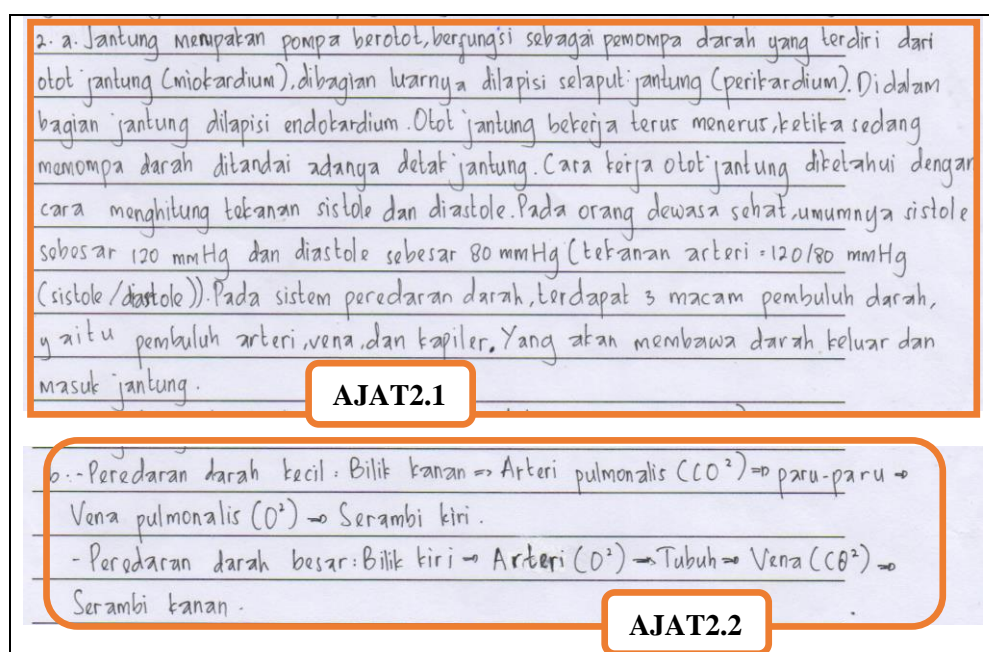 2. a. Jantung merupakan pompa berotot, berfungsi sebagai pemompa darah yang terdiri dari
otot jantung (miokardium), dibagian luarnya dilapisi selaput jantung (perikardium). Didalam
bagian jantung dilapisi endokardium. Otot jantung bekerja terus menerus, ketika sedang
memompa darah ditandai adanga detak jantung. Cara kerja otot jantung diketahui dengan
cara menghitung tekanan sistole dan diastole. Pada orang dewasa sehat, umumnya sistole
sebesar 120 mmHg dan diastole sebesar 80 mmHg (tekanan arteri = 120/80 mmHg
(sistole/diastole)). Pada sistem peredaran darah, terdapat 3 macam pembuluh darah,
yaitu pembuluh arteri, vena, dan kapiler. Yang akan membawa darah keluar dan
masuk jantung.
AJAT2.1
b. - Peredaran darah kecil : Bilik kanan ⇒ Arteri pulmonalis (CO²) ⇒ paru-paru →
Vena pulmonalis (O²) → Serambi kiri.
- Peredaran darah besar : Bilik kiri → Arteri (O²) → Tubuh → Vena (CO²) →
Serambi kanan.
AJAT2.2